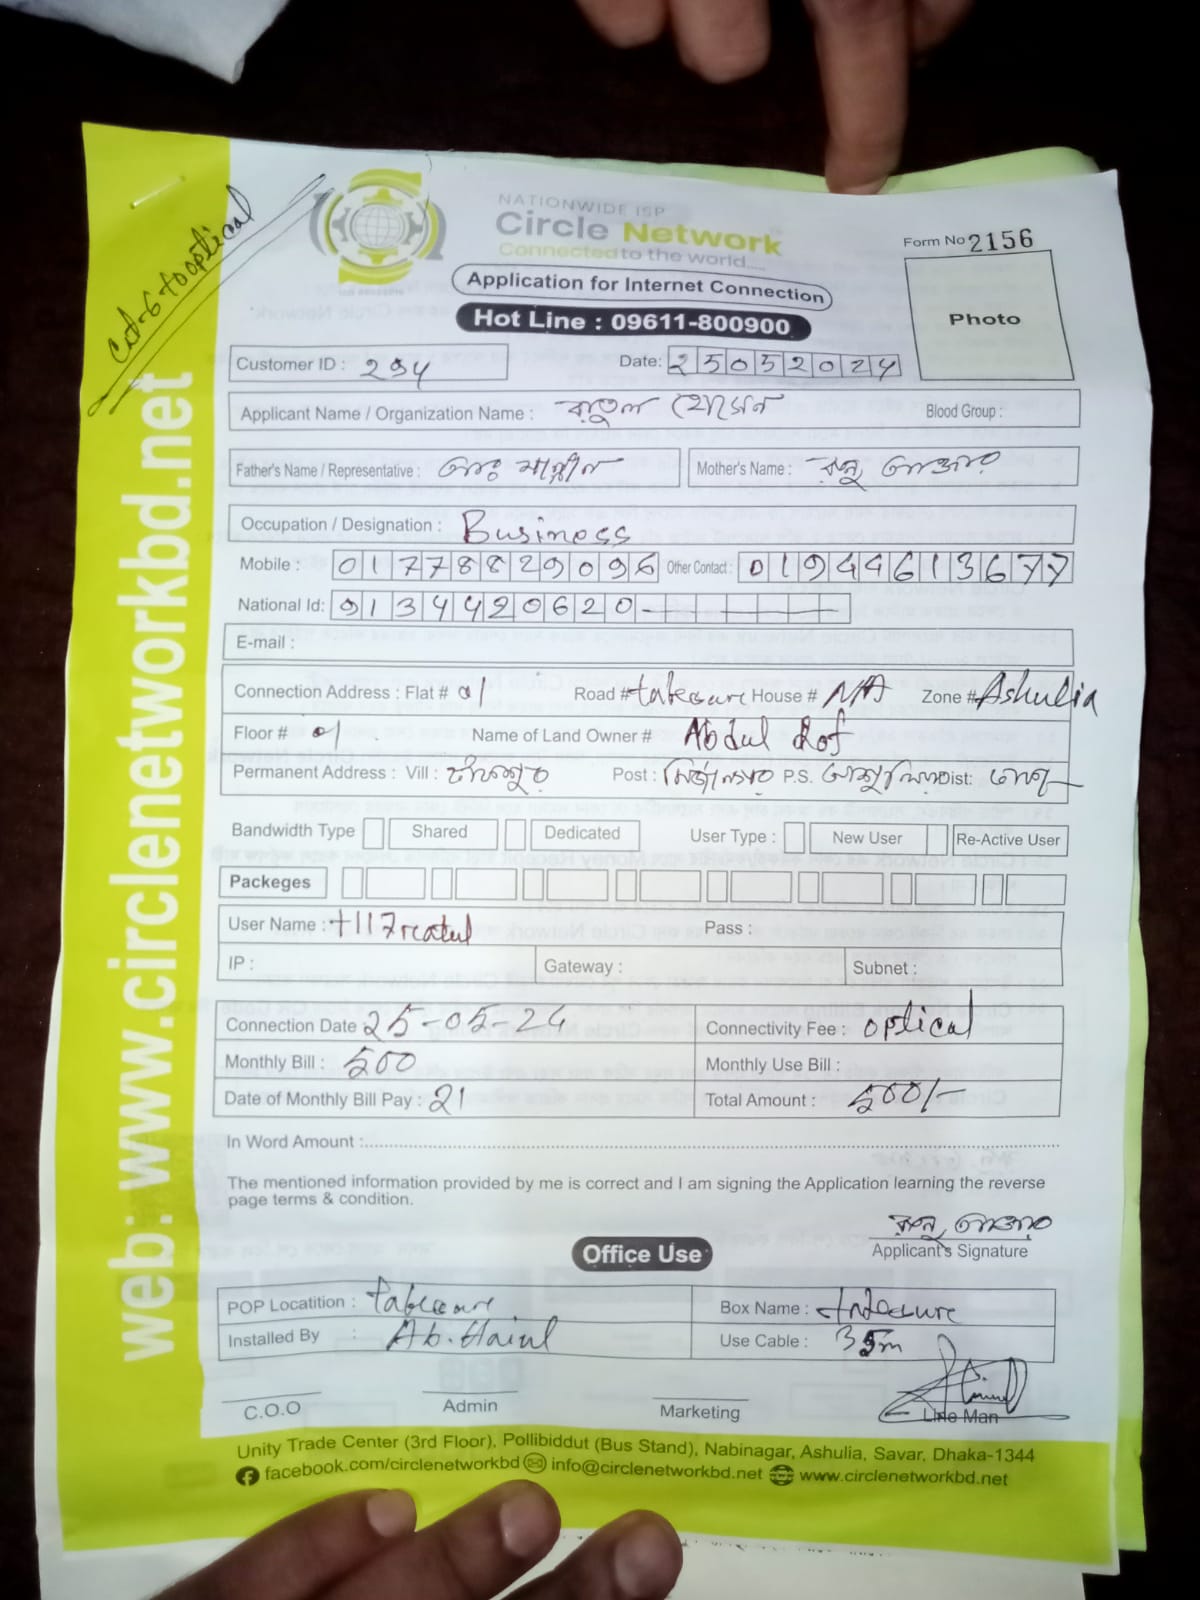 cat-6 to optical
web: www.circlenetworkbd.net
NATIONWIDE ISP
Circle Network
Connected to the world....
Form No 2156
Application for Internet Connection
Hot Line : 09611-800900
Photo
Customer ID : 294 Date: 25052024
Applicant Name / Organization Name : রাতুল হোসেন Blood Group :
Father's Name / Representative : Mother's Name : রুনু আক্তার
Occupation / Designation : Business
Mobile : 01778829096 Other Contact : 01944613677
National Id: 9134420620
E-mail :
Connection Address : Flat # 01 Road # House # N/A Zone # Ashulia
Floor # 01 Name of Land Owner # Abdul Rof
Permanent Address : Vill : Post : মির্জানগর P.S. আশুলিয়া Dist: ঢাকা
Bandwidth Type Shared Dedicated User Type : New User Re-Active User
Packeges
User Name : t117ratul Pass :
IP : Gateway : Subnet :
Connection Date 25-05-24 Connectivity Fee : optical
Monthly Bill : 500 Monthly Use Bill :
Date of Monthly Bill Pay : 21 Total Amount : 500/-
In Word Amount :
The mentioned information provided by me is correct and I am signing the Application learning the reverse
page terms & condition.
রুনু আক্তার
Applicant's Signature
Office Use
POP Locatition : Box Name :
Installed By : Use Cable : 35m
C.O.O Admin Marketing Line Man
Unity Trade Center (3rd Floor), Pollibiddut (Bus Stand), Nabinagar, Ashulia, Savar, Dhaka-1344
facebook.com/circlenetworkbd info@circlenetworkbd.net www.circlenetworkbd.net